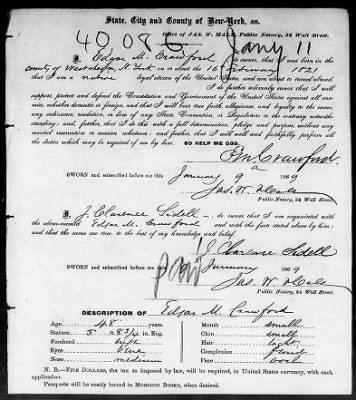 State, City and County of New-York, ss.
Office of JAS. W. HALE, Public Notary, 34 Wall Street.
40086 Jany 11
I, Edgar M. Crawford do swear, that I was born in the
county of Westchester N. York on or about the 16 February 1821
that I am a native legal citizen of the United States, and am about to travel abroad.
I do further solemnly swear that I will
support, protect and defend the Constitution and Government of the United States against all ene-
mies, whether domestic or foreign, and that I will bear true faith, allegiance, and loyalty to the same,
any ordinance, resolution, or law of any State Convention, or Legislature to the contrary notwith-
standing; and further, that I do this with a full determination, pledge and purpose, without any
mental reservation or evasion whatsoever; and further, that I will well and faithfully perform all
the duties which may be required of me by law.
SO HELP ME GOD.
E M Crawford
SWORN and subscribed before me this
January 9 1869
Jas. W. Hale
Public Notary, 34 Wall Street.
I, J. Clarence Sidell do swear that I am acquainted with
the above-named Edgar M. Crawford and with the facts stated above by him;
and that the same are true, to the best of my knowledge and belief.
J. Clarence Sidell
SWORN and subscribed before me this
January 1869
Jas. W. Hale
Public Notary, 34 Wall Street.
DESCRIPTION OF Edgar M. Crawford
Age, 48 years. Mouth small
Stature, 5 ft. 8 3/4 in. Eng. Chin small
Forehead high Hair light
Eyes blue Complexion florid
Nose medium Face oval
N. B.—FIVE DOLLARS, the tax as imposed by law, will be required, in United States currency, with each
application.
Passports will be neatly bound in MOROCCO BOOKS, when desired.